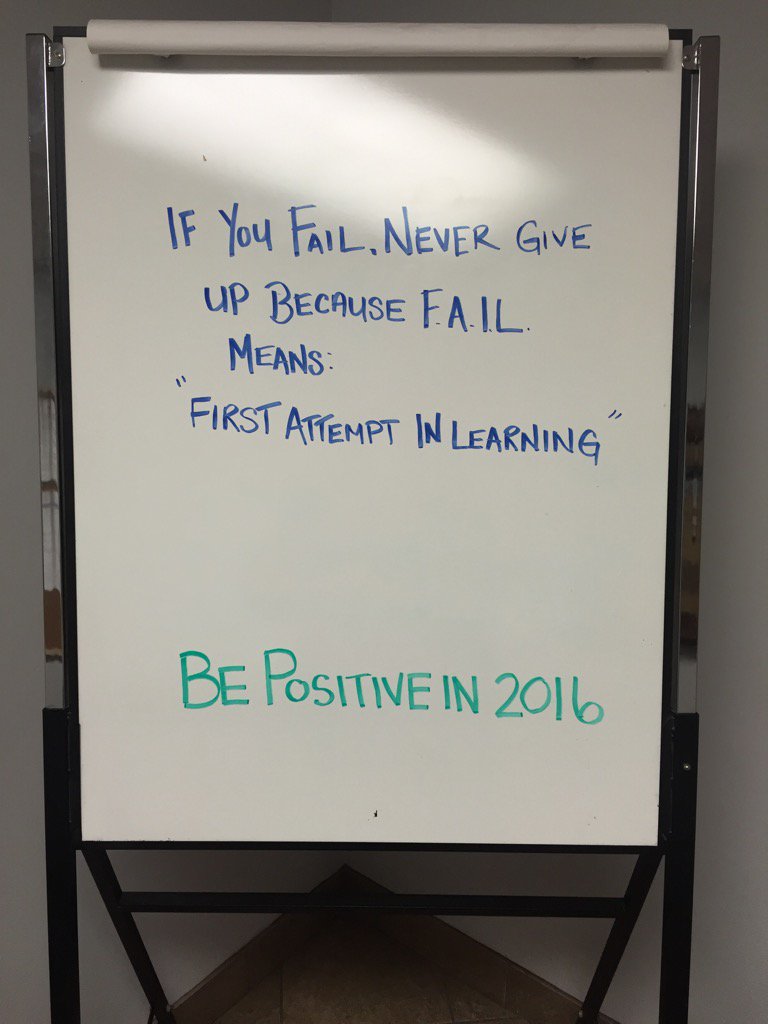 IF YOU FAIL. NEVER GIVE
UP BECAUSE F.A.I.L.
MEANS:
"FIRST ATTEMPT IN LEARNING"
BE POSITIVE IN 2016